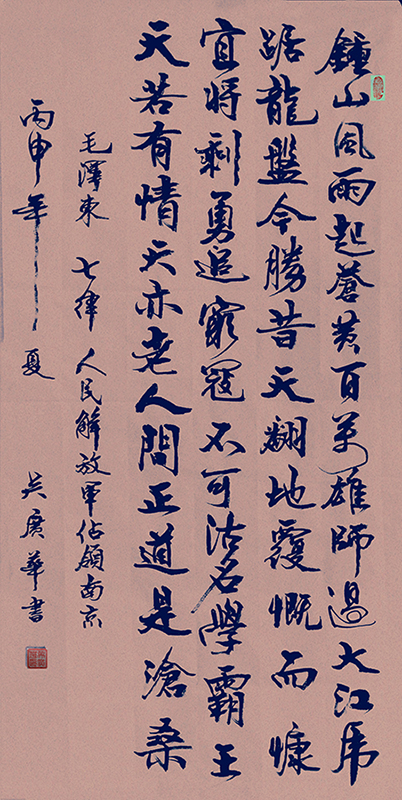 鍾山風雨起蒼黃百萬雄師過大江虎
踞龍盤今勝昔天翻地覆慨而慷
宜將剩勇追窮寇不可沽名學霸王
天若有情天亦老人間正道是滄桑
毛澤東 七律 人民解放軍佔領南京
丙申年夏 吴廣華書